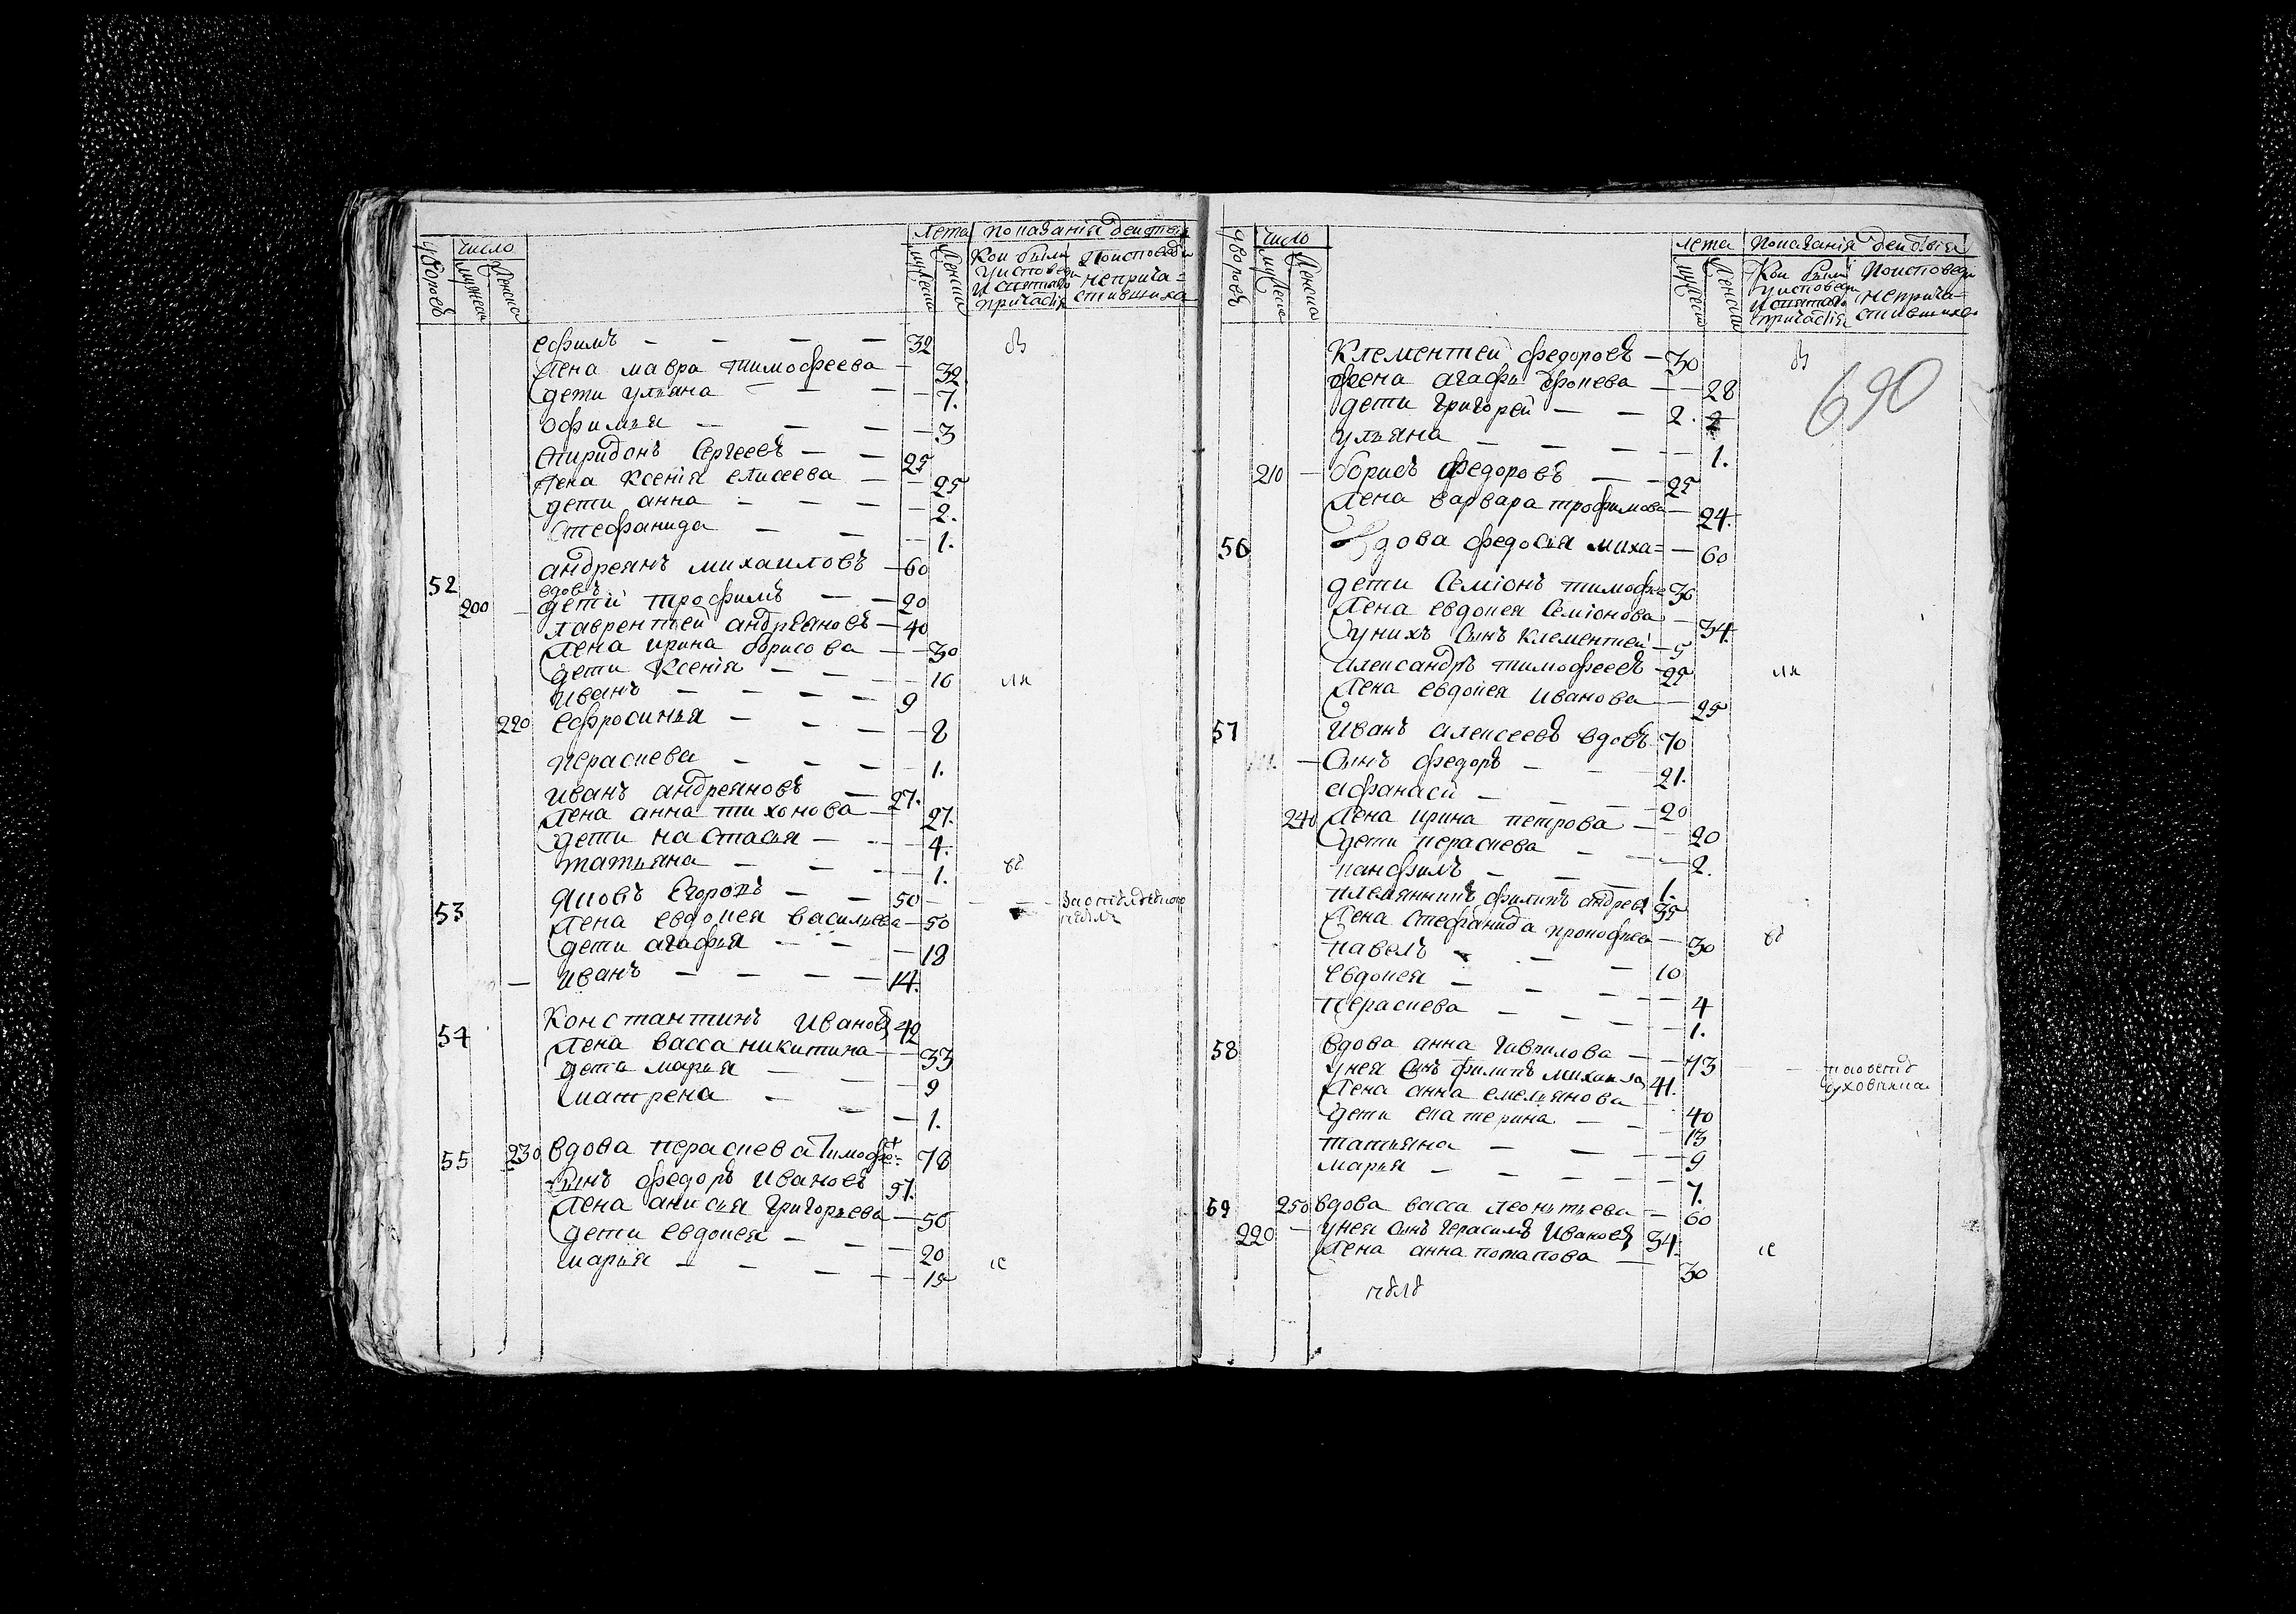 число Лета показанія действа
дворовъ мужеска женска мужеска женска Кои были у исповеди и святаго причастія По исповеди непричастившихся
ефимъ — — — — 32 бы
жена мавра тимофеева — 32.
дети ульяна — — — 7.
офимья — — — 3
спиридонъ Сергеевъ — — 25
жена Ксенія елисеева — — 25
дети анна — — — 2.
Стефанида — — — 1.
52 андреянъ михаиловъ — 60
вдовъ
200 — дети трофимъ — — 20
лаврентей андреяновъ — 40
жена ирина борисова — — 30
дети Ксенія — — — 10 ли
иванъ — — — — 9
220 ефросинья — — — — 8
Пераскева — — — — 1.
иванъ андреяновъ — 27.
жена анна тихонова — 27.
дети настасья — — — 4.
татьяна — — — — 1. во
53 яковъ Егоровъ — — 50 — —
жена евдокея васильева — 50
дети агафья — — — 18
— иванъ — — — — 14.
54 Константинъ Ивановъ 42
жена васса никитина — — 33
дети марья — — — 9
матрена — — — 1.
55 230 вдова пераскева Тимофе= 78
сынъ федоръ Ивановъ 51.
жена анисья Григорьева — 50
дети евдокея — — — 20
марья — — — — — 15 ис
число лета Показанія действія
дворовъ мужеска женска мужеска женска Кои были у исповеди и святаго причастія По исповеди непричастившихся
690
Клементей федоровъ — 30 бы
жена агафья — — 28
дети Григорей — — 2.
ульяна — — — — 1.
210 — борисъ федоровъ — — 25
жена варвара трофимова — 24.
56 Вдова федосья миха= — 60
дети Семіонъ тимофее 36
жена евдокея Семіонова — 34.
у нихъ сынъ Клементей — 5
александръ тимофеевъ — 25 ли
жена евдокея иванова — 25
57 иванъ алексеевъ вдовъ 70
— Сынъ федоръ — — — 21.
афанасй — — — — 20
240 жена ирина петрова — — 20
дети пераскева — — — 2.
панфилъ — — — 1.
племянникъ филипъ андреев 35
жена Стефанида прокофьева — 30 во
павелъ — — — 10
евдокея — — — — 4
пераскева — — — — 1.
58 вдова анна гаврилова — — 73 — —
у нея сынъ филипъ михаила 41.
жена анна емельянова — 40
дети екатерина — — — 13
татьяна — — — — 9
марья — — — — 7.
59 250 вдова васса леонтьева — 60
220 — у нея сынъ герасимъ Ивановъ 34.
жена анна потапова — 30 ис